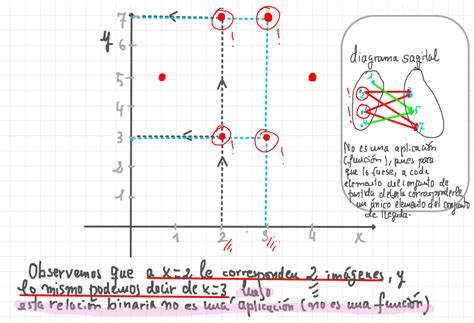 y
7
6
5
4
3
2
1
1 2 3 4 x
diagrama sagital
No es una aplicación
(función), pues para
que lo fuese, a cada
elemento del conjunto de
partida debería corresponderle
un único elemento del conjunto
de llegada.
Observemos que a x=2 le corresponden 2 imágenes, y
lo mismo podemos decir de x=3, luego
esta relación binaria no es una aplicación (no es una función)